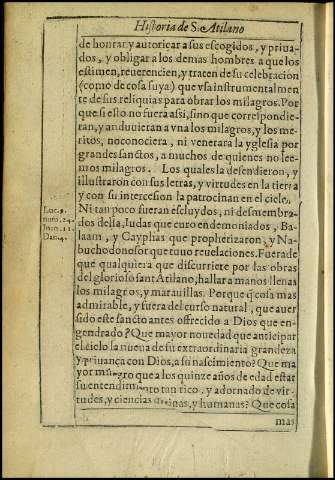 Historia de S. Atilano
de honrar y autoriçar a sus escogidos, y priua-
dos, y obligar a los demas hombres a que los
estimen, reuerencien, y traten de su celebracion
(como de cosa suya) que vsa instrumentalmen
te de sus reliquias para obrar los milagros. Por
que si esto no fuera assi, sino que correspondie-
ran, y anduuieran a vna los milagros, y los me-
ritos, no conociera, ni venerara la yglesia por
grandes sanctos, a muchos de quienes no lee-
mos milagros. Los quales la defendieron, y
illustraron con sus letras, y virtudes en la tierra
y con su intercesion la patrocinan en el cielo.
Luc. 9.
num. 24.
Joan. 11.
Dan. 4.
Ni tan poco fueran escluydos, ni desmembra-
dos della, Iudas que curo endemoniados, Ba-
laam, y Cayphas que prophetizaron, y Na-
buchodonosor que tuuo reuelaciones. Fuera de
que qualquiera que discurriere por las obras
del glorioso sant Atilano, hallara manos llenas
los milagros, y marauillas. Porque q̃ cosa mas
admirable, y fuera del curso natural, que auer
sido este sancto antes offrecido a Dios que en-
gendrado? Que mayor nouedad que anticipar
el cielo la nueua de su extraordinaria grandeza
y priuança con Dios, a su nascimiento? Que ma
yor milagro que a los quinze años de edad estar
su entendimiento tan rico, y adornado de vir-
tudes, y ciencias diuinas, y humanas? Que cosa
mas